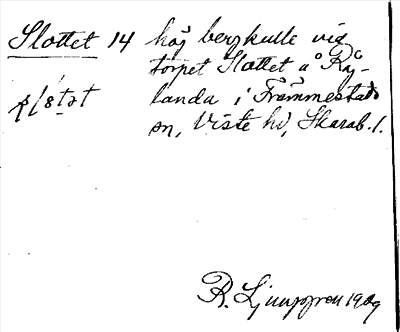 Slottet 14 höj bergkulle vid
torpet Slottet å Ry-
landa i Främmestads
sn, Viste hd, Skarab. l.
R. Ljunggren 1929